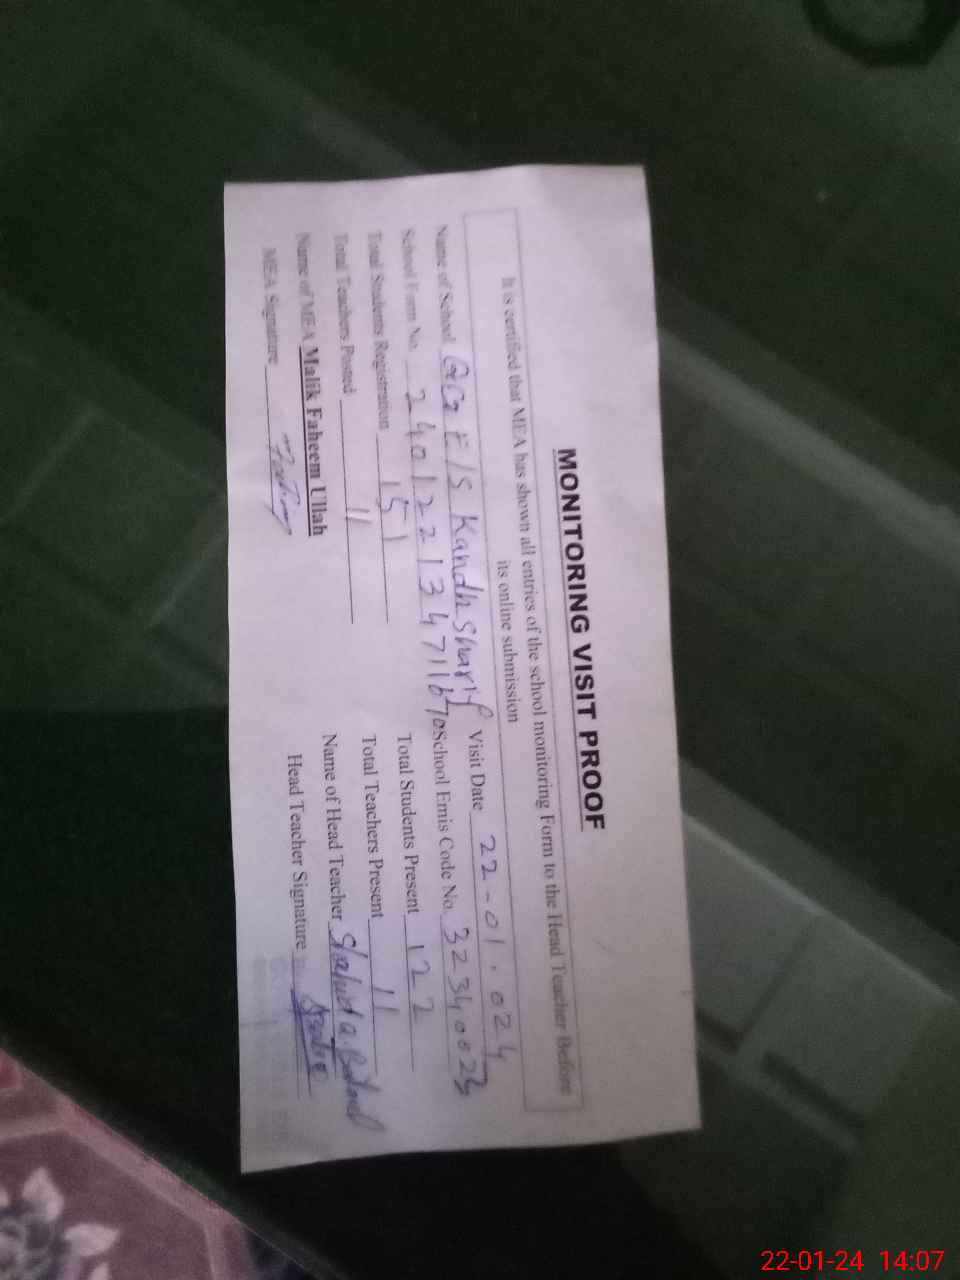 MONITORING VISIT PROOF
It is certified that MEA has shown all entries of the school monitoring Form to the Head Teacher Before
its online submission
Name of School GGE/S Kandh Sharif Visit Date 22-01-024
School Form No. 24012213471167 School Emis Code No. 32340023
Total Students Registration 151 Total Students Present 122
Total Teachers Posted 11 Total Teachers Present 11
Name of MEA Malik Faheem Ullah Name of Head Teacher
MEA Signature Head Teacher Signature
22-01-24 14:07